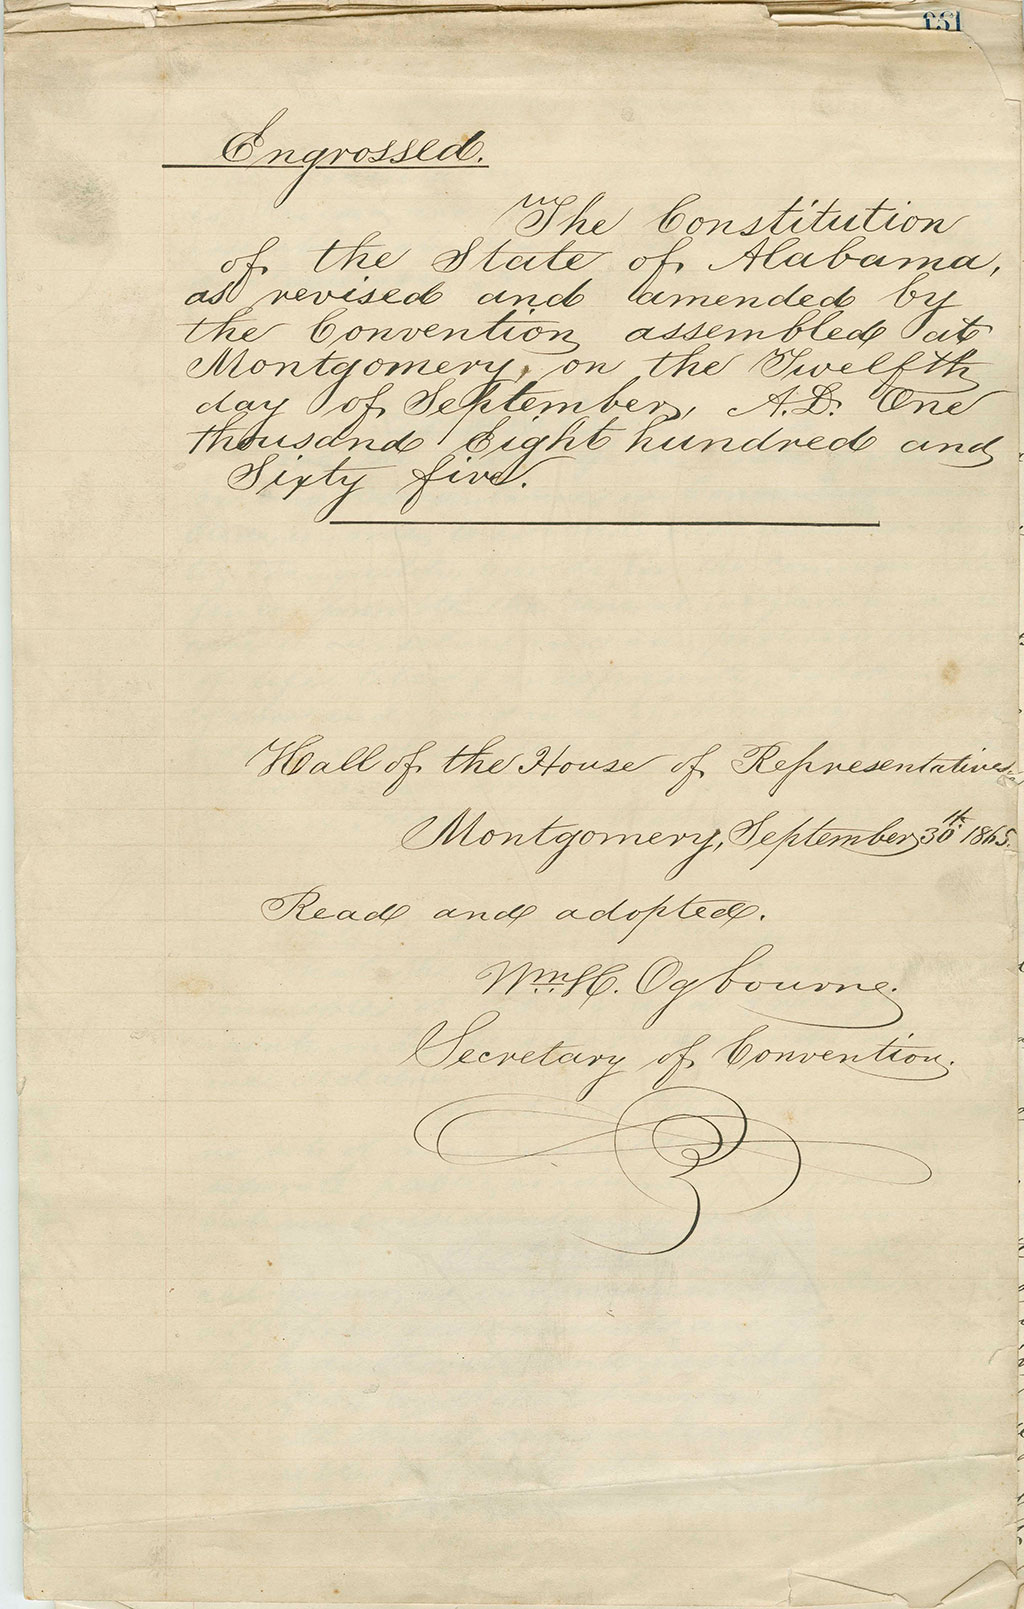 Engrossed.
The Constitution
of the State of Alabama,
as revised and amended by
the Convention assembled at
Montgomery, on the Twelfth
day of September, A.D. One
thousand Eight hundred and
Sixty five.
Hall of the House of Representatives
Montgomery, September 30th 1865.
Read and adopted.
Wm. H. Ogbourne.
Secretary of Convention.